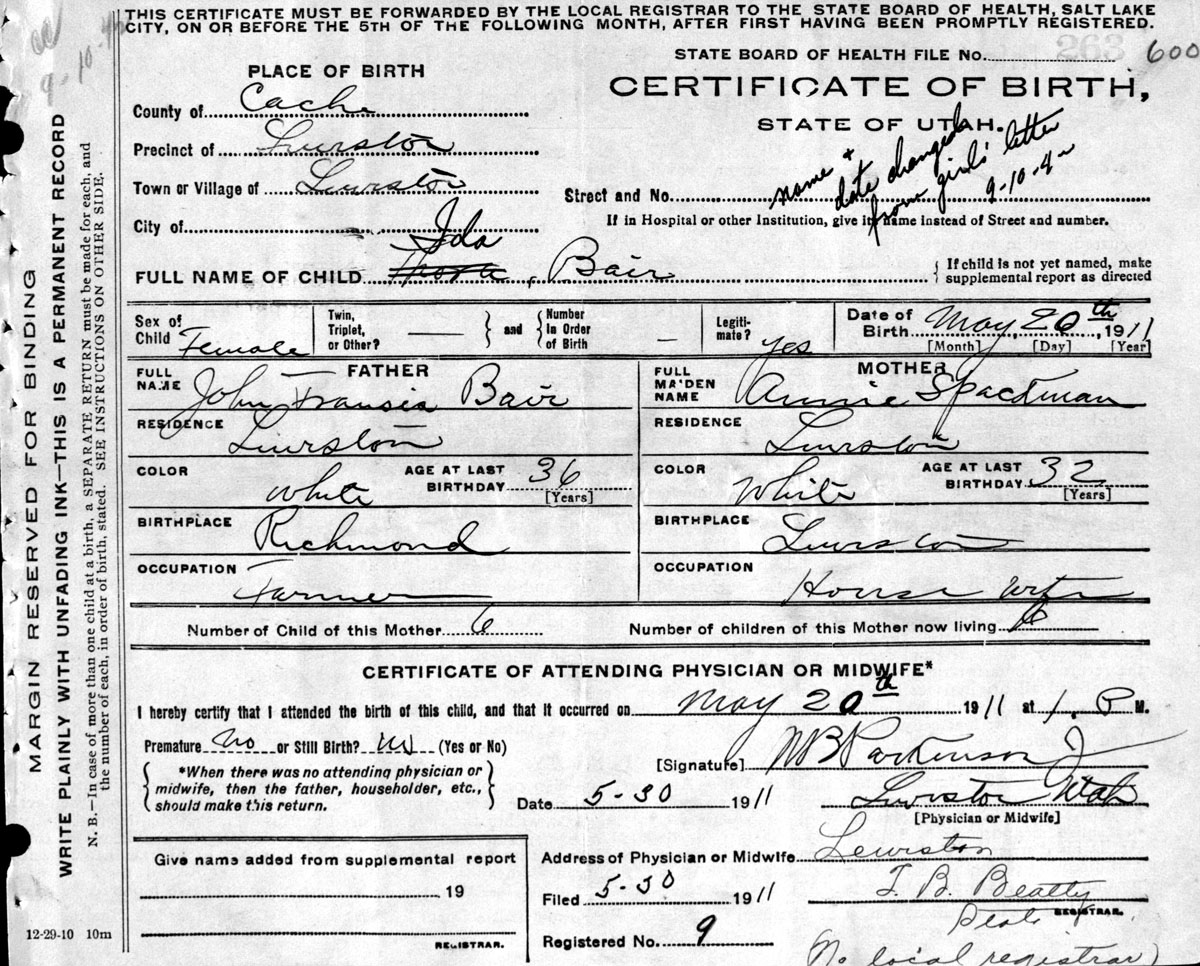 THIS CERTIFICATE MUST BE FORWARDED BY THE LOCAL REGISTRAR TO THE STATE BOARD OF HEALTH, SALT LAKE
CITY, ON OR BEFORE THE 5TH OF THE FOLLOWING MONTH, AFTER FIRST HAVING BEEN PROMPTLY REGISTERED.
STATE BOARD OF HEALTH FILE No. 263 600
PLACE OF BIRTH
CERTIFICATE OF BIRTH,
STATE OF UTAH.
County of Cache
Precinct of Lewiston
Town or Village of Lewiston
City of
Street and No.
name + date changed from girls' letter 9-10-4
If in Hospital or other Institution, give its name instead of Street and number.
FULL NAME OF CHILD Ida Bair
If child is not yet named, make
supplemental report as directed
Sex of Child Female
Twin, Triplet, or Other? —
and Number in Order of Birth —
Legiti-mate? yes
Date of Birth May 20th, 1911
[Month] [Day] [Year]
FATHER
FULL NAME John Fransis Bair
RESIDENCE Lewiston
COLOR White
AGE AT LAST BIRTHDAY 36 [Years]
BIRTHPLACE Richmond
OCCUPATION Farmer
MOTHER
FULL MAIDEN NAME Annie Spackman
RESIDENCE Lewiston
COLOR White
AGE AT LAST BIRTHDAY 32 [Years]
BIRTHPLACE Lewiston
OCCUPATION House wife
Number of Child of this Mother 6
Number of children of this Mother now living 6
CERTIFICATE OF ATTENDING PHYSICIAN OR MIDWIFE*
I hereby certify that I attended the birth of this child, and that it occurred on May 20th 1911 at 1. P M.
Premature no or Still Birth? no (Yes or No)
*When there was no attending physician or
midwife, then the father, householder, etc.,
should make this return.
[Signature] WB Parkinson Jr
Date 5-30 1911
Lewiston Utah
[Physician or Midwife]
Give name added from supplemental report
19
REGISTRAR.
Address of Physician or Midwife Lewiston
Filed 5-30 1911
T. B. Beatty
REGISTRAR.
Registered No. 9
(No local registrar)
12-29-10 10m
MARGIN RESERVED FOR BINDING
WRITE PLAINLY WITH UNFADING INK—THIS IS A PERMANENT RECORD
N. B.—In case of more than one child at a birth, a SEPARATE RETURN must be made for each, and
the number of each, in order of birth, stated. SEE INSTRUCTIONS ON OTHER SIDE.